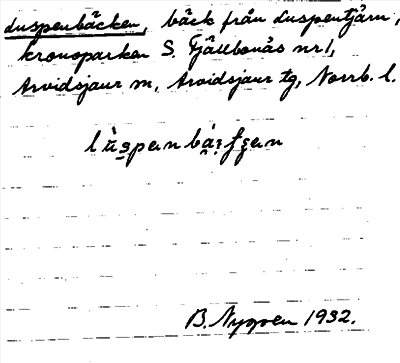 Luspenbäcken, bäck från Luspentjärn,
kronoparken S. Fjällbonäs nr 1,
Arvidsjaur sn, Arvidsjaur tg, Norrb. l.
B. Nygren 1932.